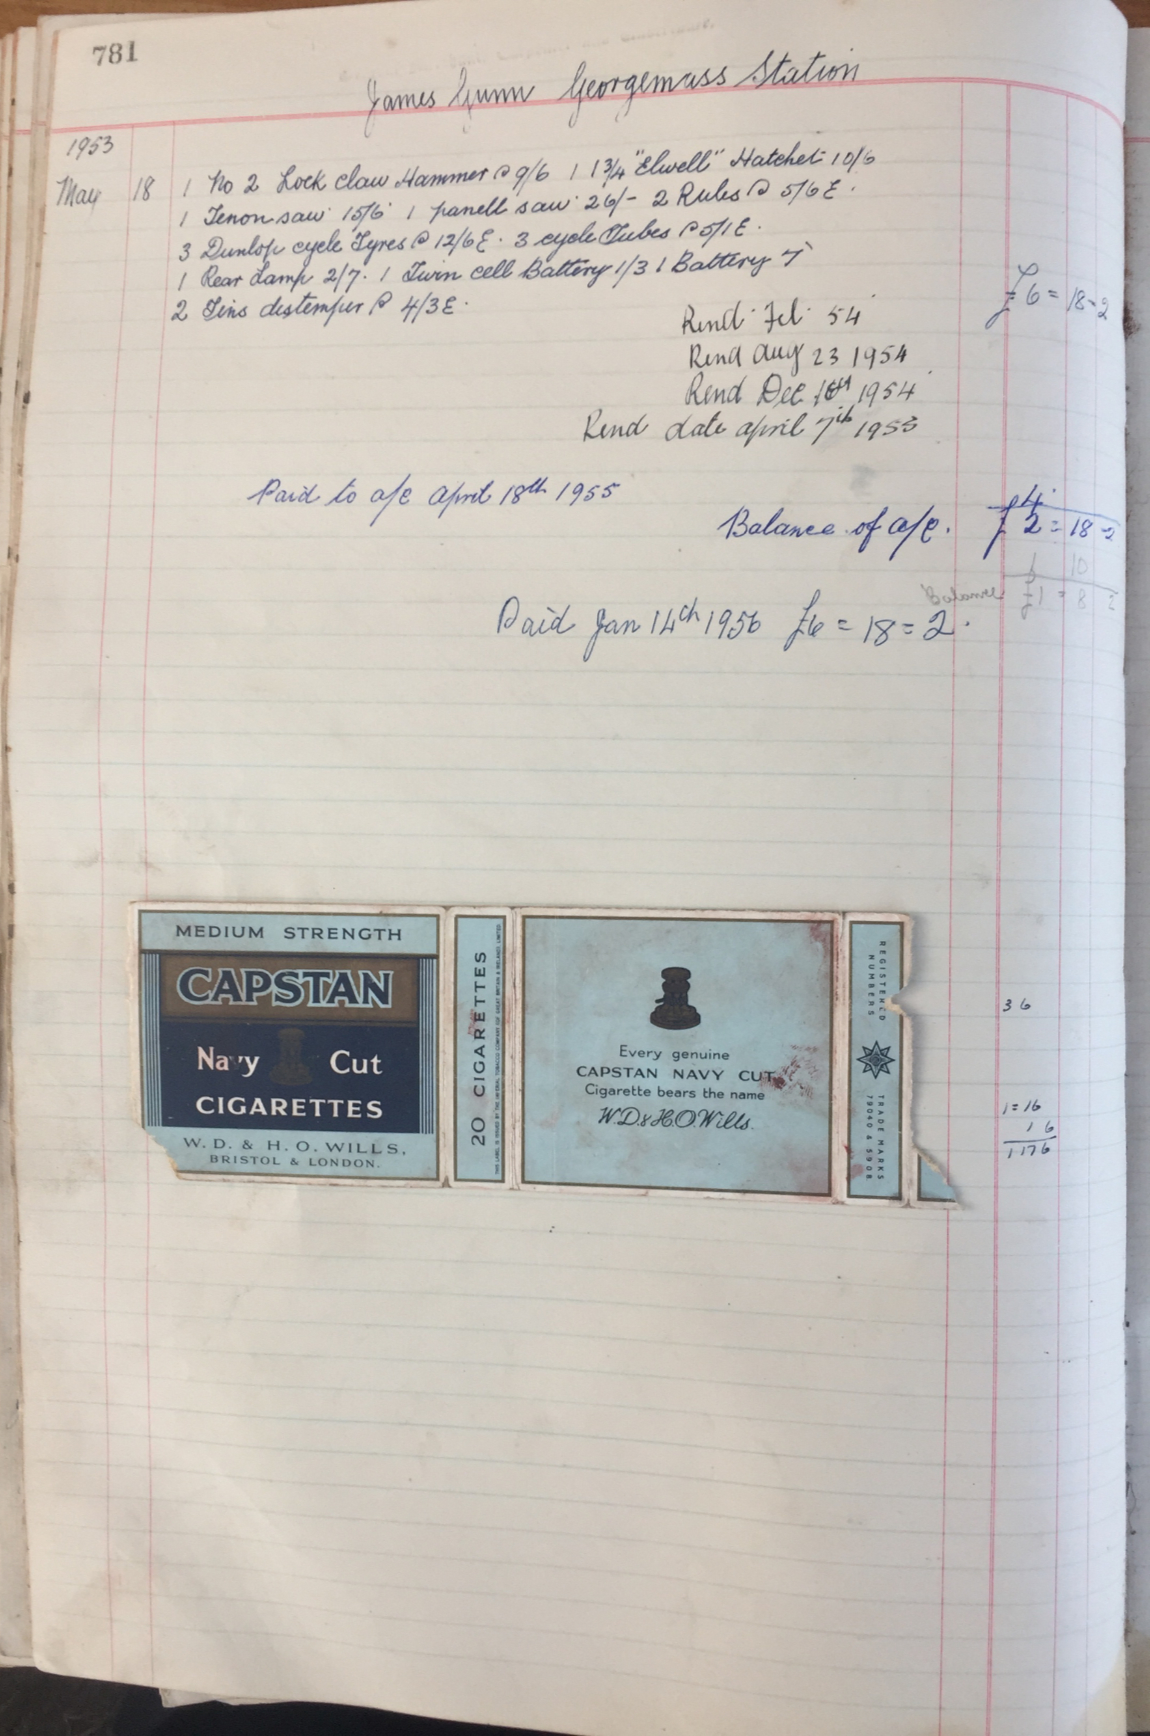 781
James Gunn Georgemass Station
1953
May 18 1 No 2 Lock claw Hammer @ 9/6 1 1 3/4 "Elwell" Hatchet 10/6
1 Tenon saw 15/6 1 panell saw 26/- 2 Rules @ 5/6 E.
3 Dunlop cycle Tyres @ 12/6 E. 3 cycle Tubes @ 5/1 E.
1 Rear Lamp 2/7. 1 Twin cell Battery 1/3 1 Battery 7
2 Tins distemper @ 4/3 E. £6 = 18-2
Rend Feb 54
Rend Aug 23 1954
Rend Dec 1954
Rend date april 7th 1955
Paid to a/c April 18th 1955 4
Balance of a/c. £2 = 18-2
10
Balance £1 = 8 2
Paid Jan 14th 1956 £6 = 18 = 2.
MEDIUM STRENGTH
CAPSTAN
Navy Cut
CIGARETTES
W.D. & H.O. WILLS,
BRISTOL & LONDON.
20 CIGARETTES
Every genuine
CAPSTAN NAVY CUT
Cigarette bears the name
W.D. & H.O. Wills.
REGISTERED
NUMBERS
TRADE MARKS
79040 & 5908
36
1=16
16
1176